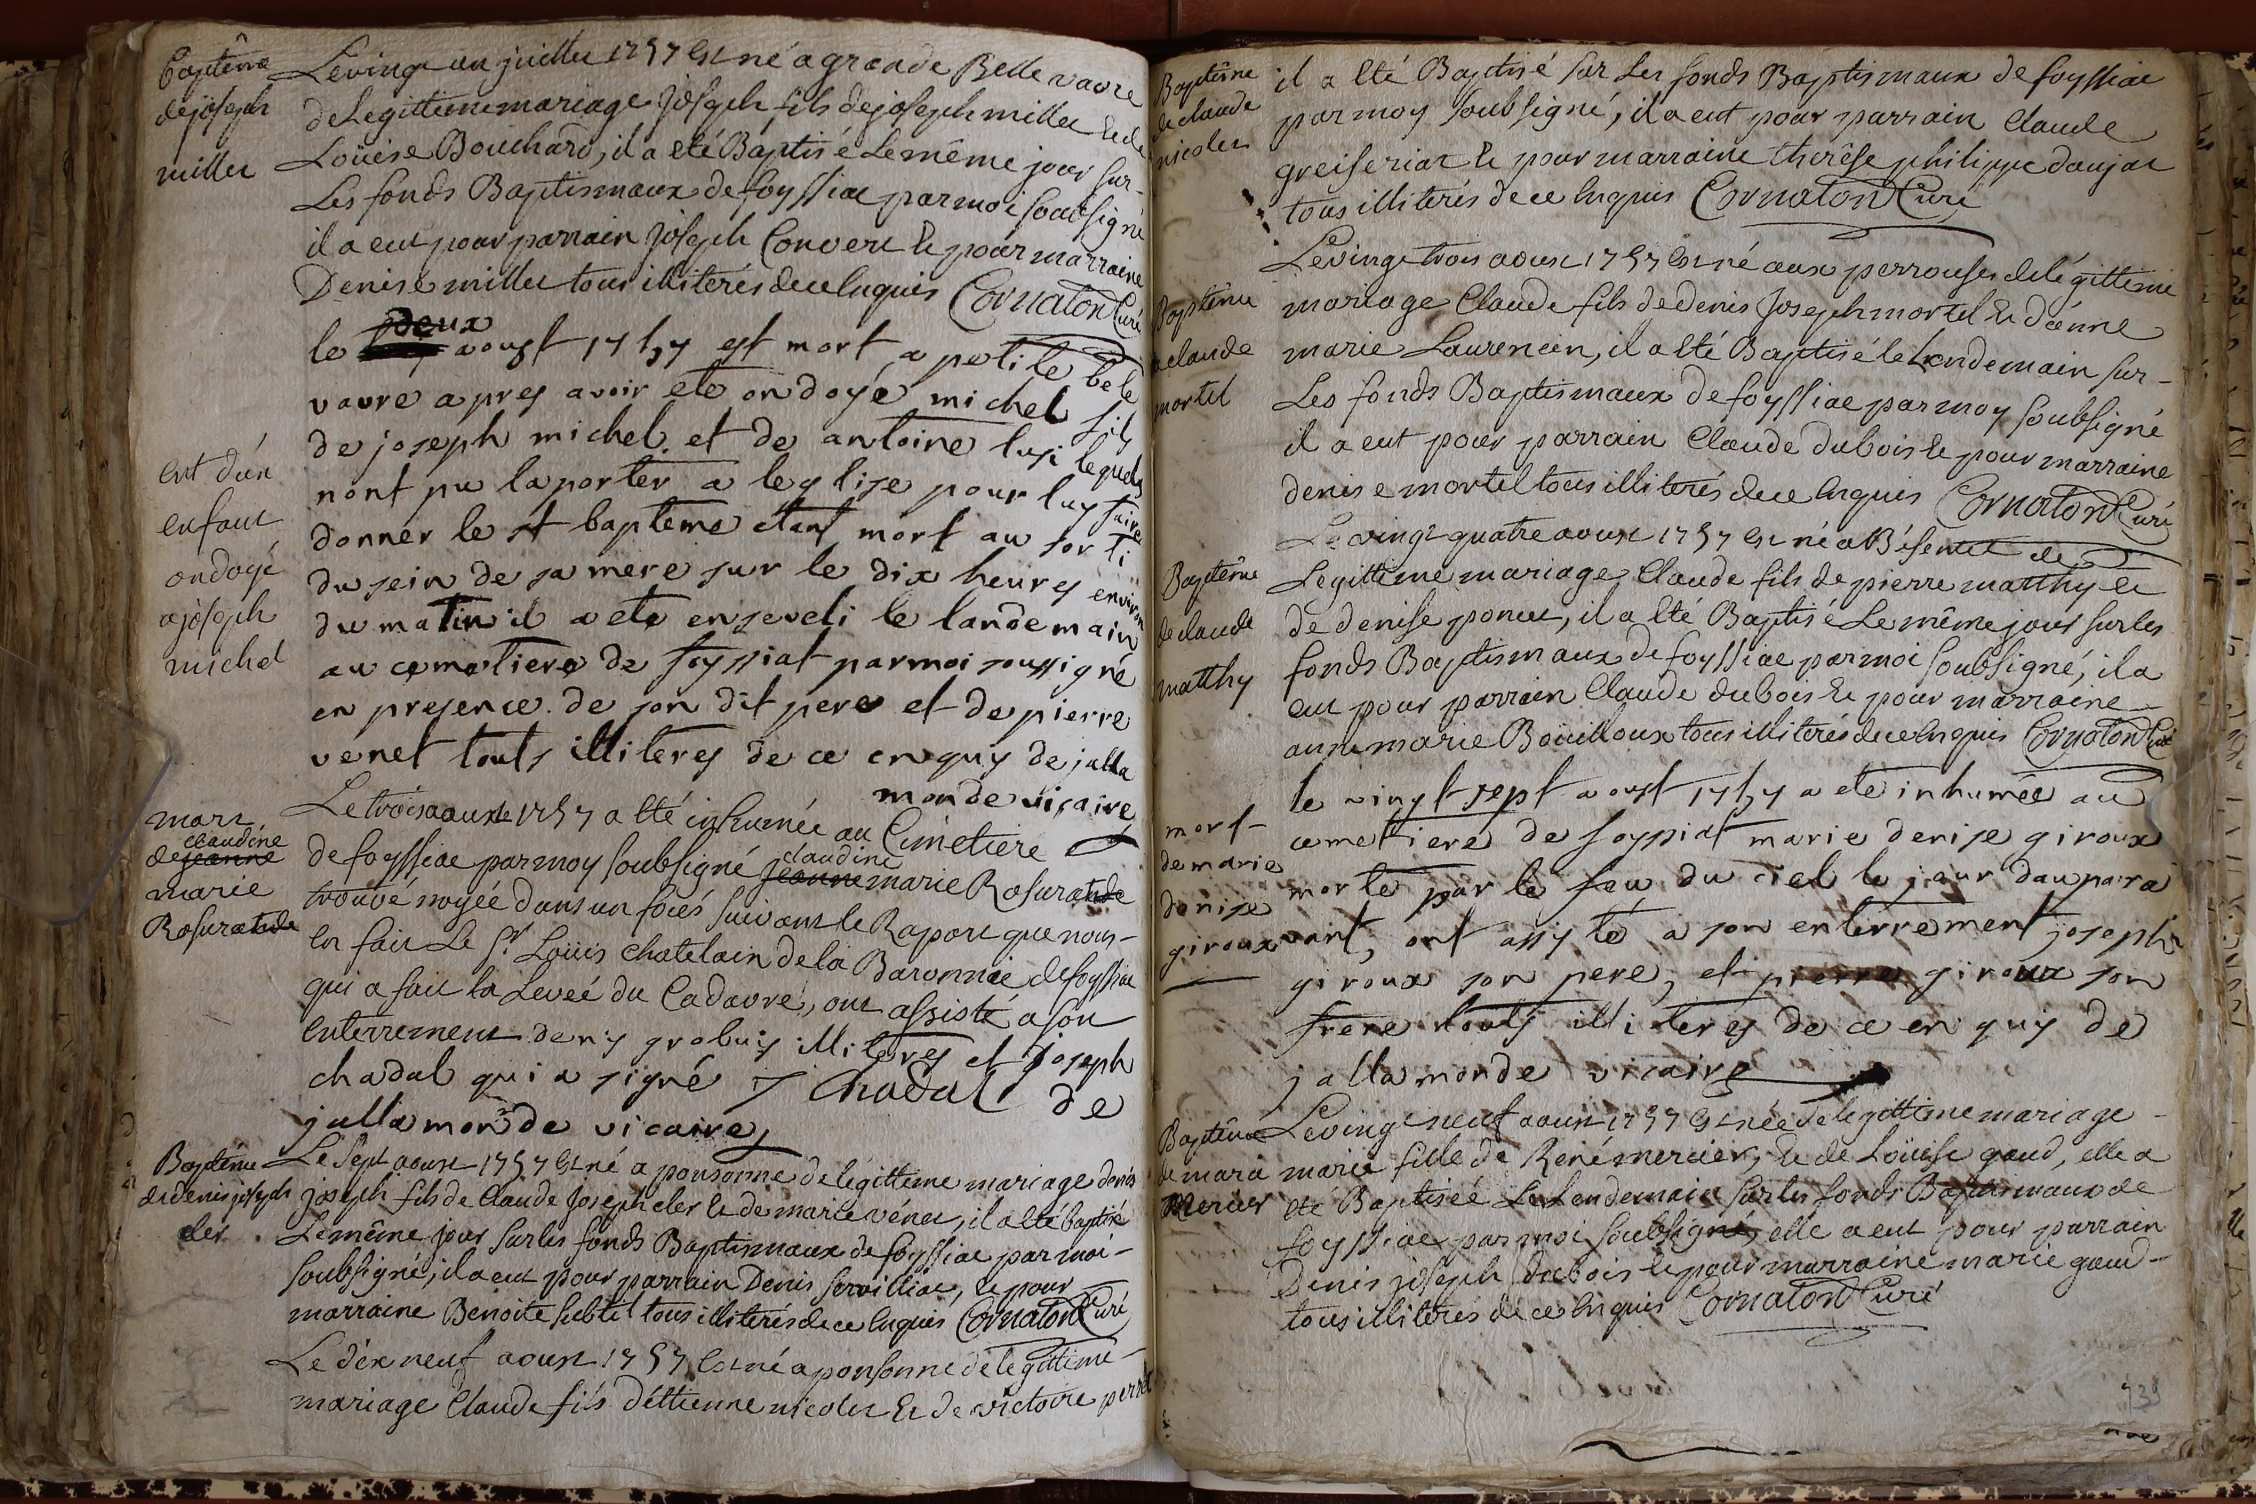 Baptême
de joseph
millet
Le vingt un juillet 1757 est né a grande Belle vavre
de Legittime mariage joseph fils de joseph millet et de
Loüise Bouchard, il a eté Baptisé Le même jour sur-
Les fonds Baptismaux de foyssiat par moi soubsigné
il a eut pour parrain joseph Convert et pour marraine
Denise millet tous illiterés de ce Enquis Cornaton Curé
ent d'un
enfant
ondoyé
a joseph
michel
le deux aoust 1757 est mort a petite bele
vavre apres avoir ete ondoyé michel fils
de joseph michel et de antoine lusi lequels
nont pu laporter a leglise pour luy faire
donner le st bapteme etant mort au sorti
du sein de sa mere sur le dix heures environ
du matin il a ete enseveli le landemain
au cemetiere de foyssiat par moi soussigné
en presence de son dit pere et de pierre
venet touts illiteres de ce enquis de jalla
monde vicaire
mort
claudine
de jeanne
marie
Rosurande
Le trois aoust 1757 a eté inhumée au Cimetiere
de foyssiat par moy soubsigné claudine jeanne marie Rosurande
trouvé noyée dans un fossés suivant le Raport que nous-
en fait Le Sr. Loüis Chatelain de la Baronnie de foyssiat
qui a fait la Leveé du Cadavre, ont assisté a son
Enterrement denis grobuis illiteres et joseph
chadal qui a signé J Chadal de
jalla monde vicaire
Baptême
de denis joseph
cler
Le sept aoust 1757 est né a ponsonne de légittime mariage denis
joseph fils de Claude Joseph cler et de marie vénet, il a eté baptisé
Le même jour sur les fonds Baptismaux de foyssiat par moi-
soubsigné, il a eut pour parrain Denis servilliat, et pour
marraine Benoite subtil tous illiterés de ce Enquis Cornaton Curé
Le dix neuf aoust 1757 est né a ponsonne de legittime-
mariage Claude fils d'éttienne nicolet et de victoire perret
Baptême
de claude
nicolet
il a eté Baptisé sur Les fonds Baptismaux de foyssiat
par moy soubsigné, il a eut pour parrain Claude
greiseriat et pour marraine thérése philippe daujat
tous illiterés de ce Enquis Cornaton Curé
Baptême
de claude
mortel
Le vingt trois aoust 1757 est né aux perrouses de légittime
mariage Claude fils de denis Joseph mortel et d'énne
marie Laurencin, il a eté Baptisé le Lendemain sur-
Les fonds Baptismaux de foyssiat par moy soubsigné
il a eut pour parrain Claude dubois et pour marraine
denise mortel tous illiterés de ce Enquis Cornaton Curé
Baptême
de claude
matthy
Le vingt quatre aoust 1757 est né a Bésentet de
Legittime mariage Claude fils de pierre matthy et
de denise poncet, il a eté Baptisé Le même jour sur les
fonds Baptismaux de foyssiat par moi soubsigné, il a
eut pour parrain Claude dubois et pour marraine-
anne marie Boüilloux tous illiterés de ce Enquis Cornaton Curé
mort
de marie
denise
giroux
le vingt sept aoust 1757 a ete inhumée au
cemetiere de foyssiat marie denise giroux
morte par le feu du ciel le jour daupara
vant, ont assisté a son enterrement joseph
giroux son pere, et pierre giroux son
frere touts illiteres de ce enquis de
jalla monde vicaire
Baptême
de marie
Mercier
Le vingt neuf aoust 1757 est née de legittime mariage-
marie fille de René mercier, et de Loüise gaud, elle a
eté Baptiseé Le Lendemain sur les fonds Baptismaux de
foyssiat par moi soubsigné, elle a eut pour parrain
Denis joseph dubois et pour marraine marie gaud-
tous illiterés de ce Enquis Cornaton Curé
739